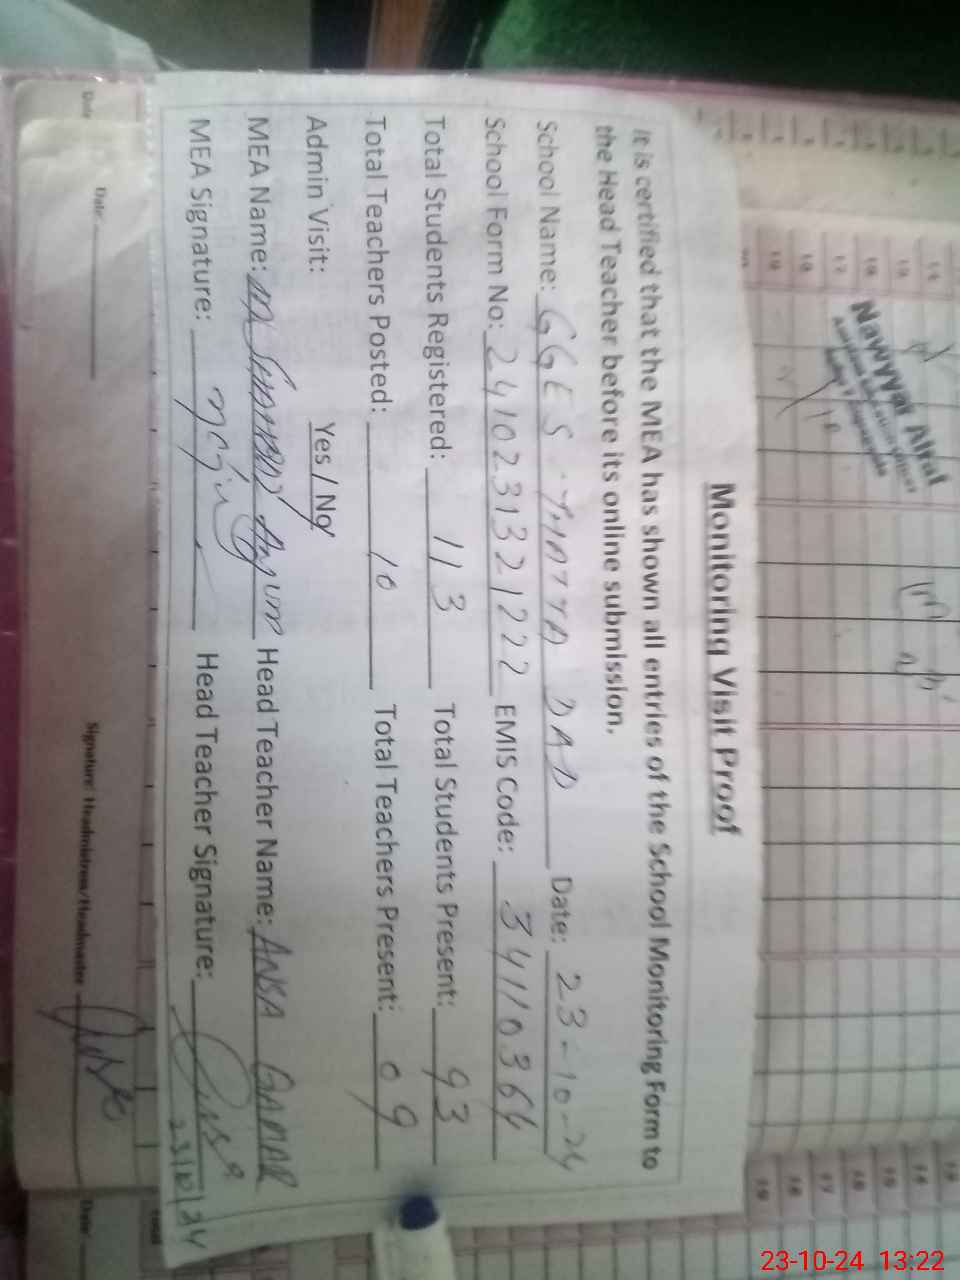 Monitoring Visit Proof
It is certified that the MEA has shown all entries of the School Monitoring Form to
the Head Teacher before its online submission.
School Name: GGES THATTA DAD Date: 23-10-24
School Form No: 2410231321222 EMIS Code: 34110364
Total Students Registered: 113 Total Students Present: 93
Total Teachers Posted: 10 Total Teachers Present: 09
Admin Visit: Yes / No
MEA Name: Anjum Head Teacher Name: ANSA
MEA Signature: Head Teacher Signature:
23/10/24
Date: Signature: Headmistress/Headmaster Date
23-10-24 13:22